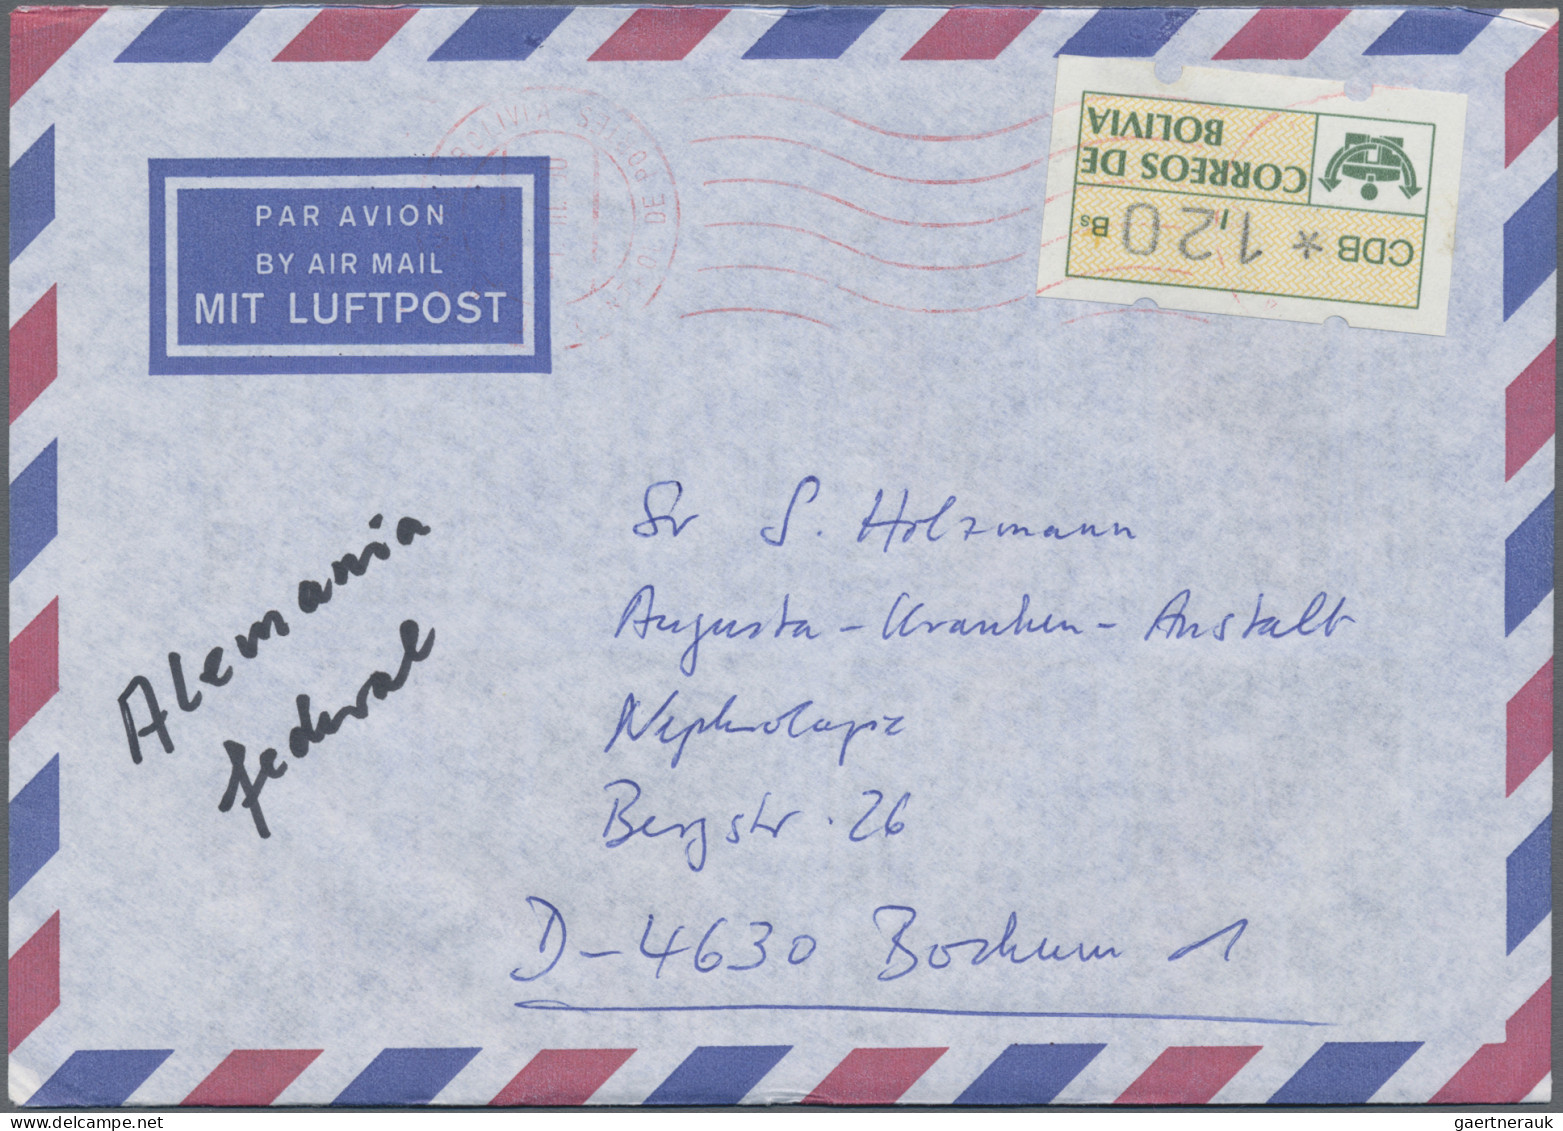 PAR AVION
BY AIR MAIL
MIT LUFTPOST
CORREOS DE
BOLIVIA
CDB * 1,20 Bs
Alemania
federal
Sr S. Holzmann
Augusta-Kranken-Anstalt
Nephrologie
Bergstr. 26
D-4630 Bochum 1
gaertnerauk